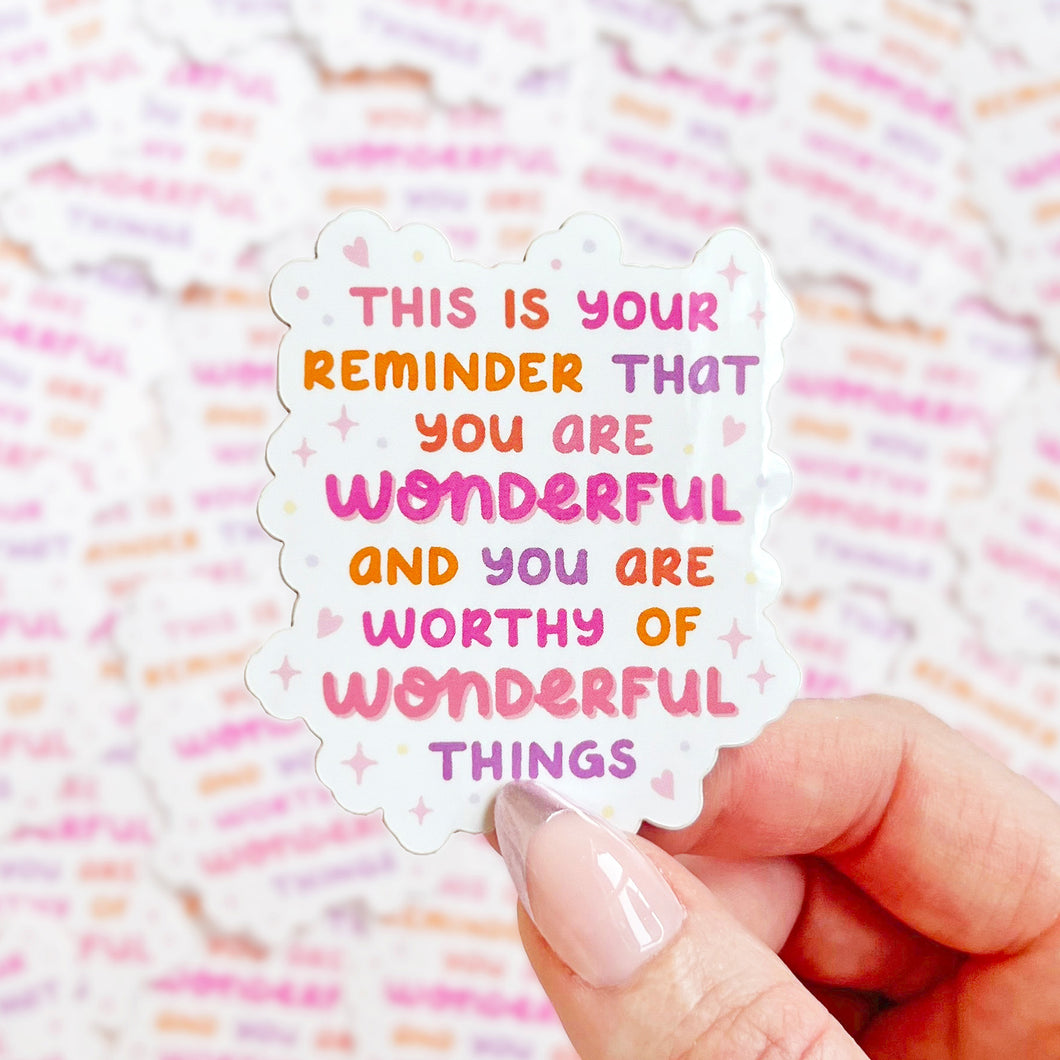 THIS IS YOUR
REMINDER THAT
YOU ARE
WONDERFUL
AND YOU ARE
WORTHY OF
WONDERFUL
THINGS